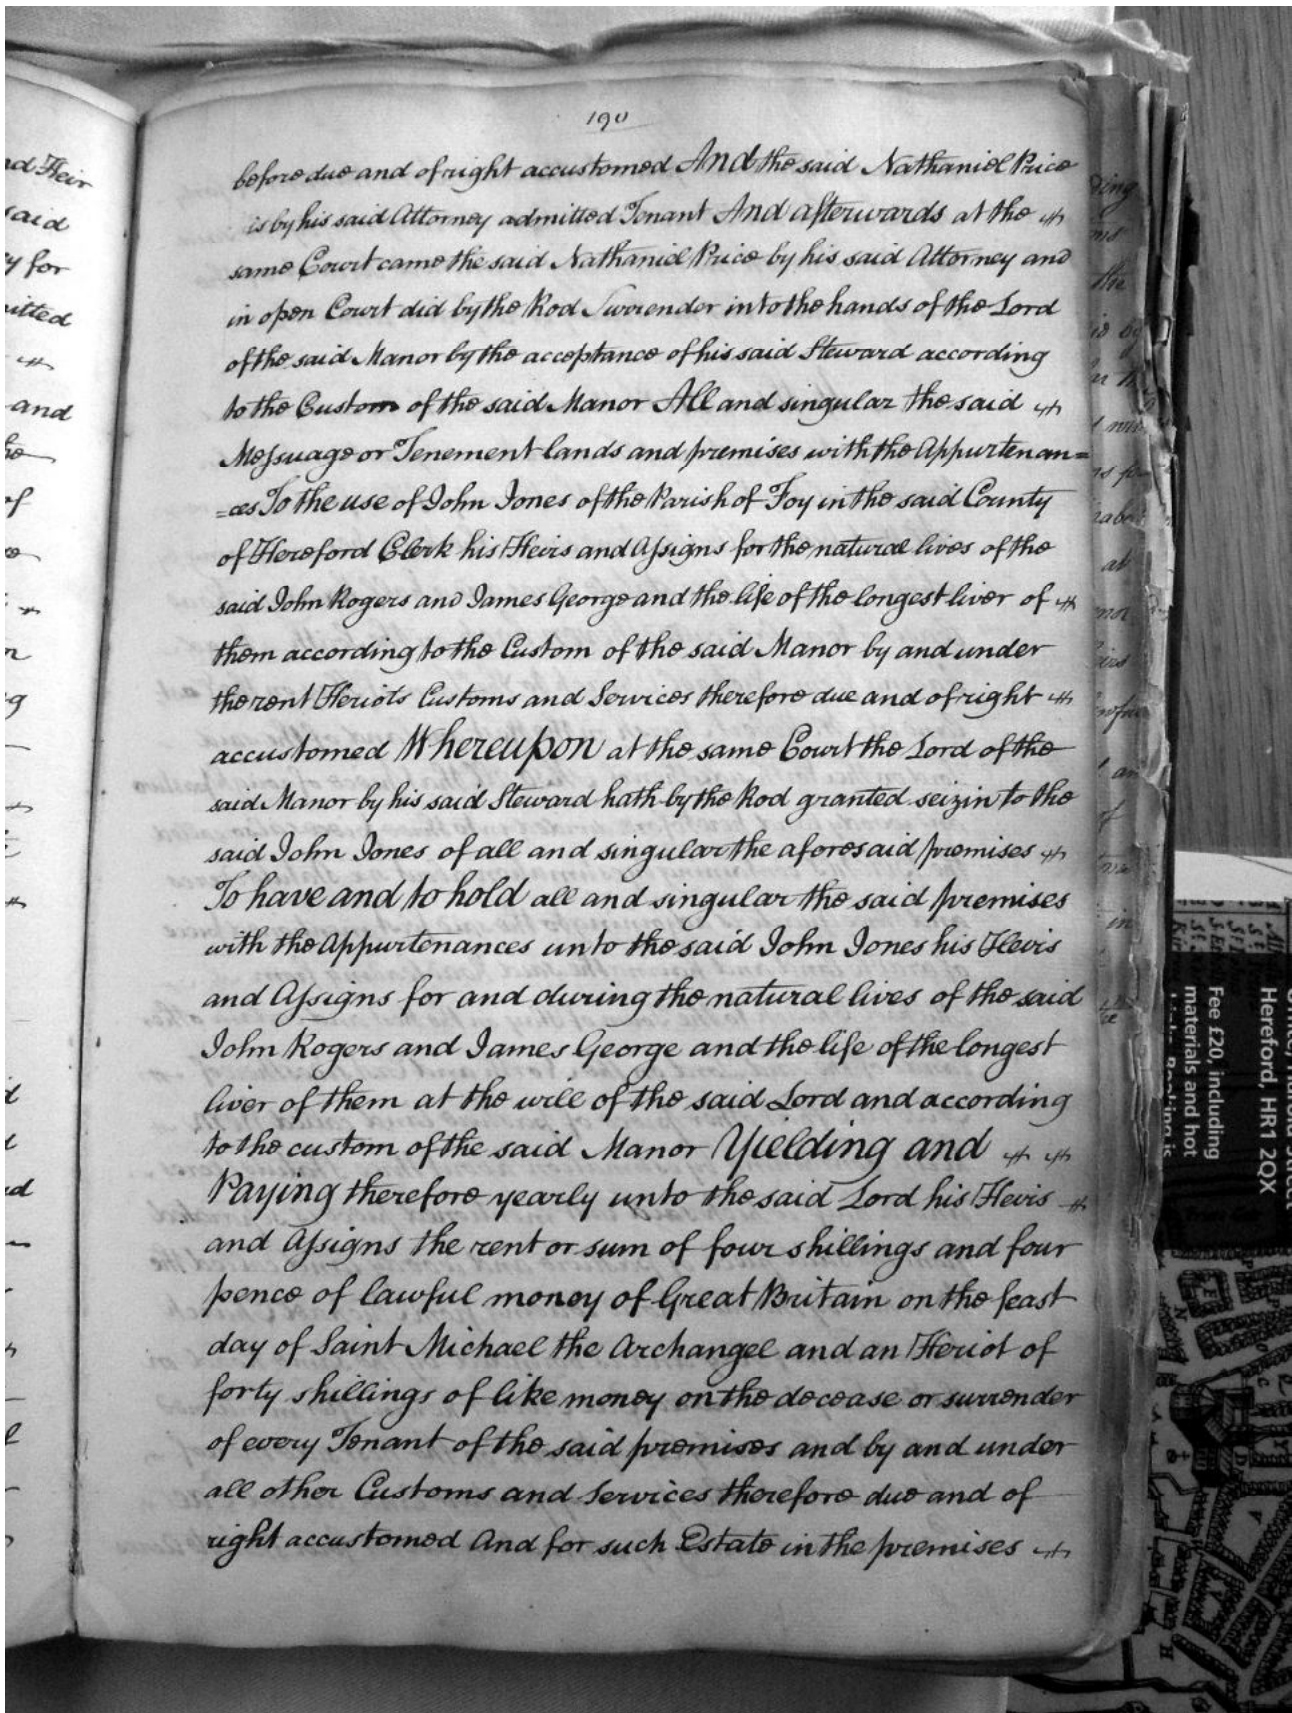 190
before due and of right accustomed And the said Nathaniel Price
is by his said Attorney admitted Tenant And afterwards at the
same Court came the said Nathaniel Price by his said Attorney and
in open Court did by the Rod Surrender into the hands of the Lord
of the said Manor by the acceptance of his said Steward according
to the Custom of the said Manor All and singular the said
Messuage or Tenement lands and premises with the Appurtenan=
=ces To the use of John Jones of the Parish of Foy in the said County
of Hereford Clerk his Heirs and Assigns for the natural lives of the
said John Rogers and James George and the life of the longest liver of
them according to the Custom of the said Manor by and under
the rent Heriots Customs and Services therefore due and of right
accustomed Whereupon at the same Court the Lord of the
said Manor by his said Steward hath by the Rod granted seizin to the
said John Jones of all and singular the aforesaid premises
To have and to hold all and singular the said premises
with the Appurtenances unto the said John Jones his Heirs
and Assigns for and during the natural lives of the said
John Rogers and James George and the life of the longest
liver of them at the will of the said Lord and according
to the custom of the said Manor Yielding and
Paying therefore yearly unto the said Lord his Heirs
and Assigns the rent or sum of four shillings and four
pence of lawful money of Great Britain on the feast
day of Saint Michael the Archangel and an Heriot of
forty shillings of like money on the decease or surrender
of every Tenant of the said premises and by and under
all other Customs and Services therefore due and of
right accustomed And for such Estate in the premises
Heir
said
for
and
of
the
at
in
Hereford, HR1 2QX
Fee £20, including
materials and hot